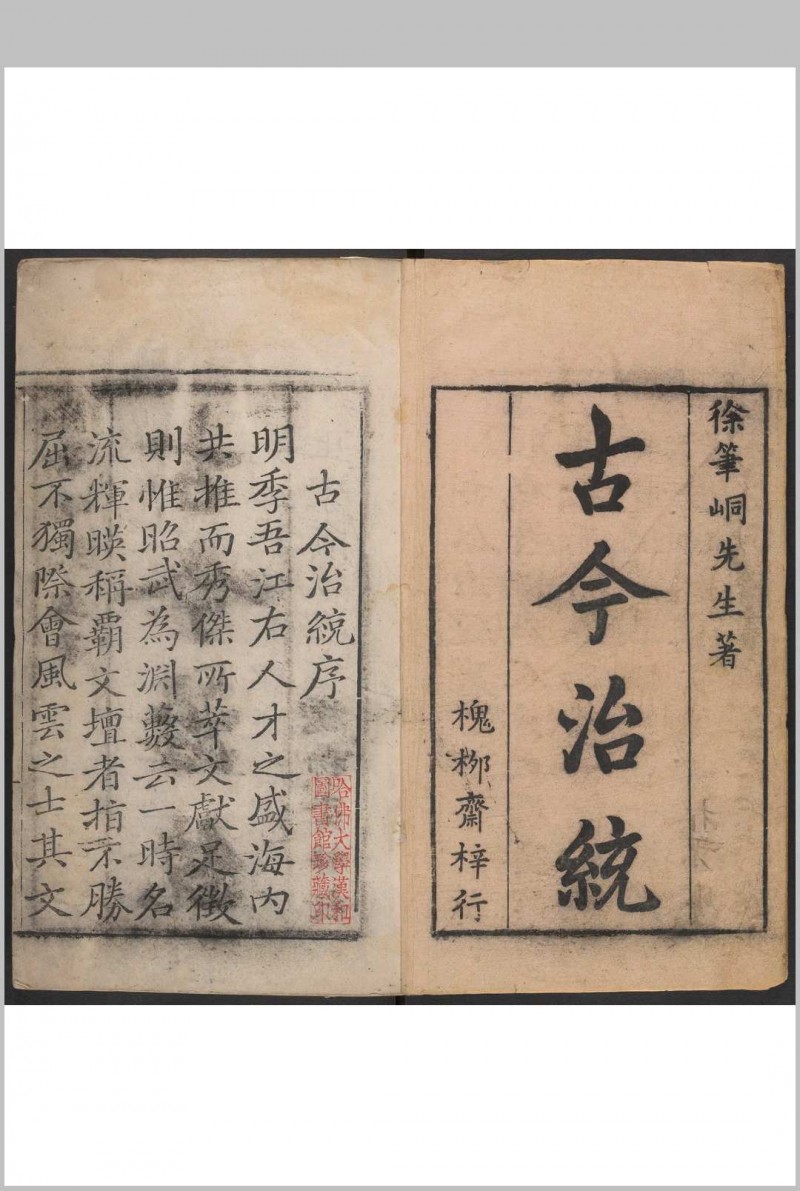 徐筆峒先生著
古今治統
槐栁齋梓行
古今治統序
明季吾江右人才之盛海內
共推而秀傑所萃文獻足徵
則惟昭武為淵藪云一時名
流輝暎稱霸文壇者指不勝
屈不獨際會風雲之士其文
哈佛大學漢和
圖書館珍藏印